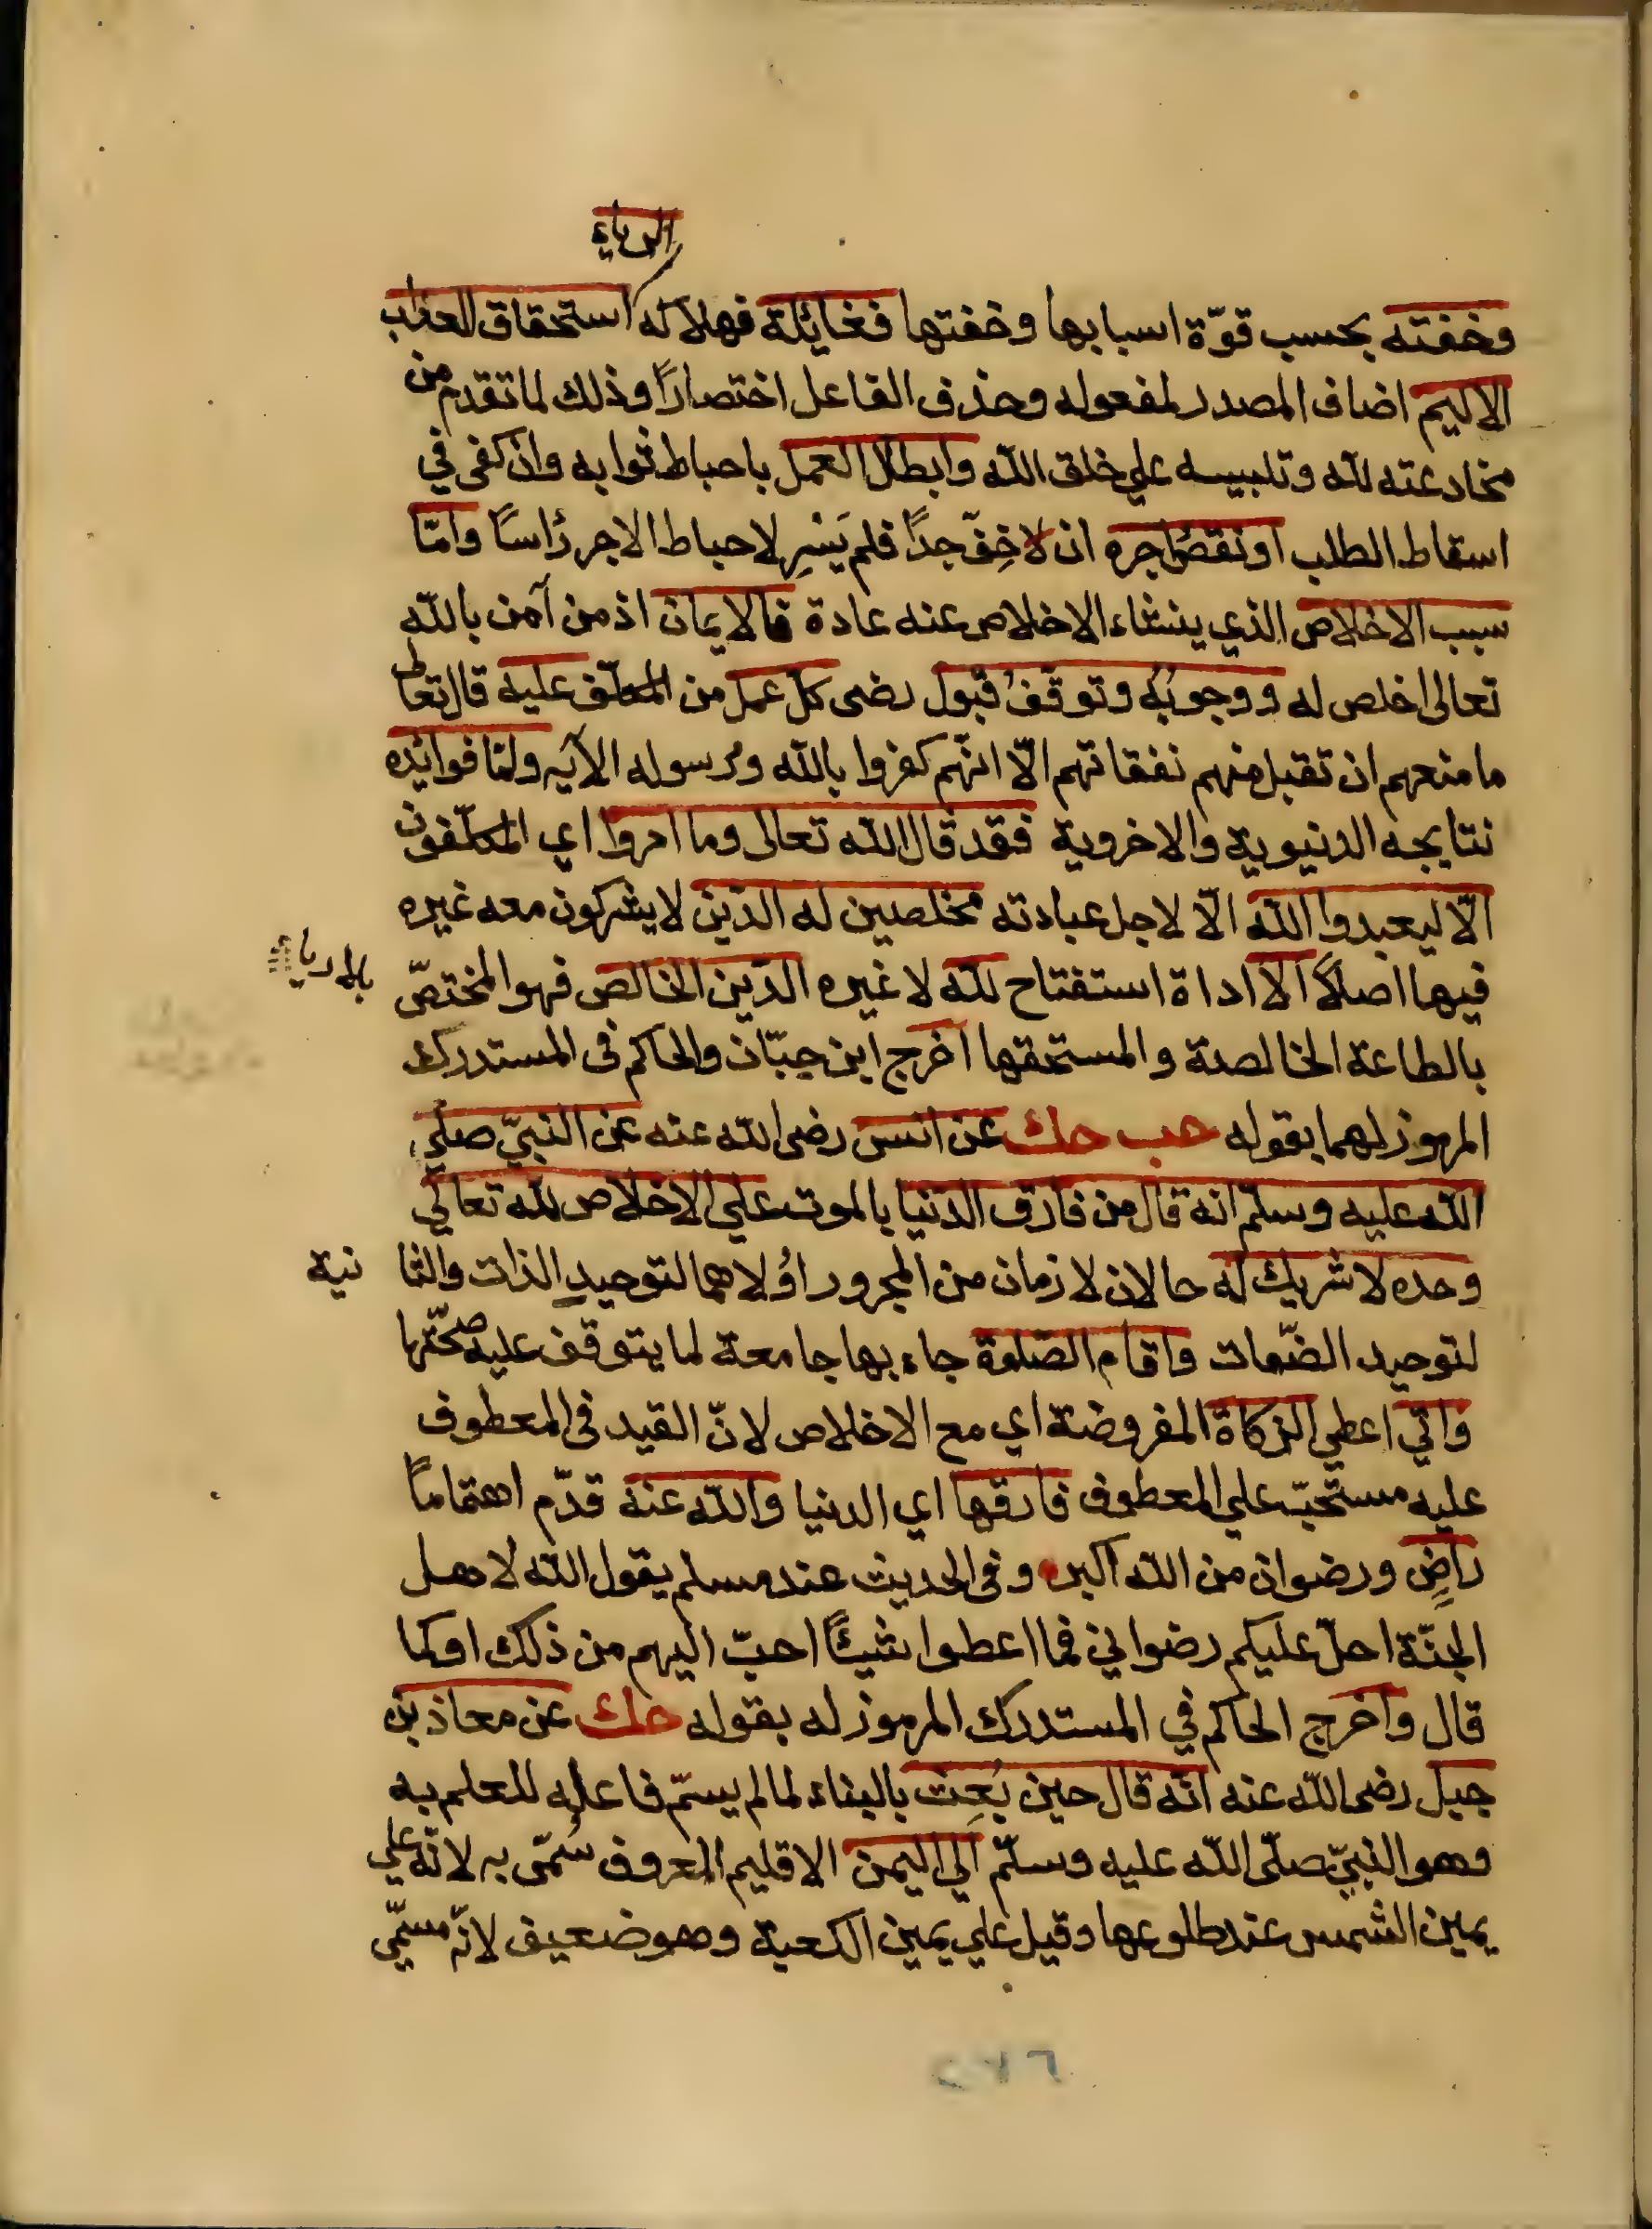 الرياء
وخفته بحسب قوّة اسبابها وخفتها فغائلة فهلاكه استحقاق العذاب
الاليم اضاف المصدر لمفعوله وحذف الفاعل اختصاراً وذلك لما تقدم من
مخادعته لله وتلبيسه علي خلق الله وابطال العمل باحباط ثوابه وان كفى في
اسقاط الطلب او نقص اجره ان لاخفّ جداً فلم يَسْرِ لاحباط الاجر رُاساً وامّا
سبب الاخلاص الذي ينشاء الاخلاص عنه عادة فالايمان اذ من آمن بالله
تعالى اخلص له ووجوبُه وتوقّفُ قبول رضى كلّ عمل من المكلّف عليه قال تعالى
ما منعهم ان تقبل منهم نفقاتهم الّا انّهم كفروا بالله وبرسوله الآيه وامّا فوائده
نتايجه الدنيوية والاخروية فقد قال الله تعالى وما امروا اي المكلّفون
الّا ليعبدوا الله الّا لاجل عبادته مخلصين له الدّين لا يشركون معه غيره
فيها اصلاً الا اداة استفتاح لله لا غيره الدّين الخالص فهو المختصّ
بالطاعة الخالصة والمستحقها اخرج ابن حبّان والحاكم فى المستدرك
المرموز لهما بقوله حب حك عن انس رضى الله عنه عن النبيّ صلّي
الله عليه وسلّم انه قال من فارق الدّنيا بالموت علي الاخلاص لله تعالي
وحده لا شريك له حالان لازمان من المجرور اُولاهما لتوحيد الذات والثا نية
لتوحيد الصّفات واقام الصّلوة جاء بها جامعة لما يتوقف عليه صحّتها
واتي اعطي الزكاة المفروضة اي مع الاخلاص لانّ القيد فى المعطوف
عليه مستحبّ علي المعطوف فارقها اي الدنيا والله عنه قدّم اهتماماً
راضٍ ورضوان من الله اكبر وفى الحديث عند مسلم يقول الله لاهل
الجنّة احلّ عليكم رضواني فما اعطوا شيئاً احبّ اليهم من ذلك اوكما
قال واخرج الحاكم في المستدرك المرموز له بقوله حك عن معاذ بن
جبل رضى الله عنه انّه قال حين بُعِث بالبناء لما لم يسمّ فاعله للعلم به
وهو النبيّ صلّى الله عليه وسلّم الي اليمن الاقليم المعروف سُمّى به لانّه علي
يمين الشمس عند طلوعها وقيل علي يمين الكعبة وهو ضعيف لانّه مسمّي